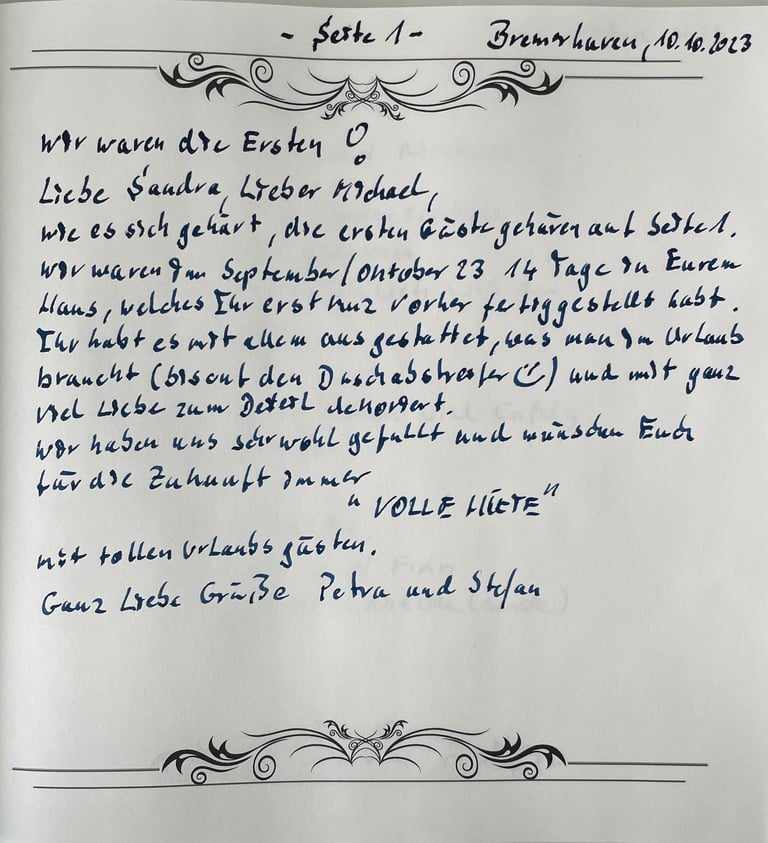 - Seite 1 -
Bremerhaven, 10.10.2023
Wir waren die Ersten !
Liebe Sandra, Lieber Michael,
wie es sich gehört, die ersten Gäste gehören auf Seite 1.
Wir waren im September/Oktober 23 14 Tage in Eurem
Haus, welches Ihr erst kurz vorher fertiggestellt habt.
Ihr habt es mit allem ausgestattet, was man im Urlaub
braucht (bis auf den Duschabstreifer ☺) und mit ganz
viel Liebe zum Detail dekoriert.
Wir haben uns sehr wohl gefühlt und wünschen Euch
für die Zukunft immer
" VOLLE HÜTTE "
mit tollen Urlaubsgästen.
Ganz Liebe Grüße Petra und Stefan